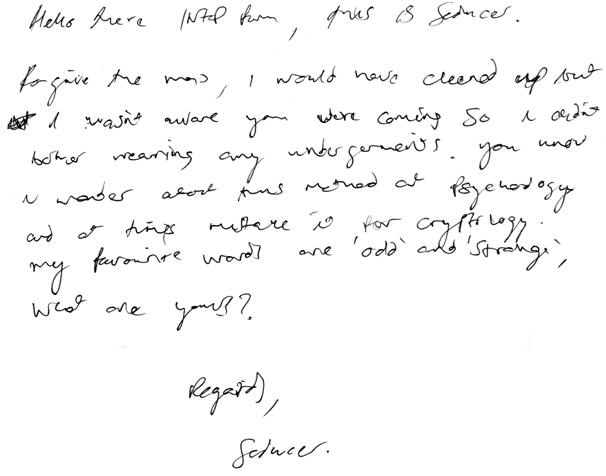 Hello there INTP forum, this is Seducer.
Forgive the mess, I would have cleaned up but
I wasn't aware you were coming so I didn't
bother wearing any undergarments. you know
I wonder about this method of Psychology
and at times mistake it for cryptology.
my favourite words are 'odd' and 'strange',
what are yours?
Regards,
Seducer.